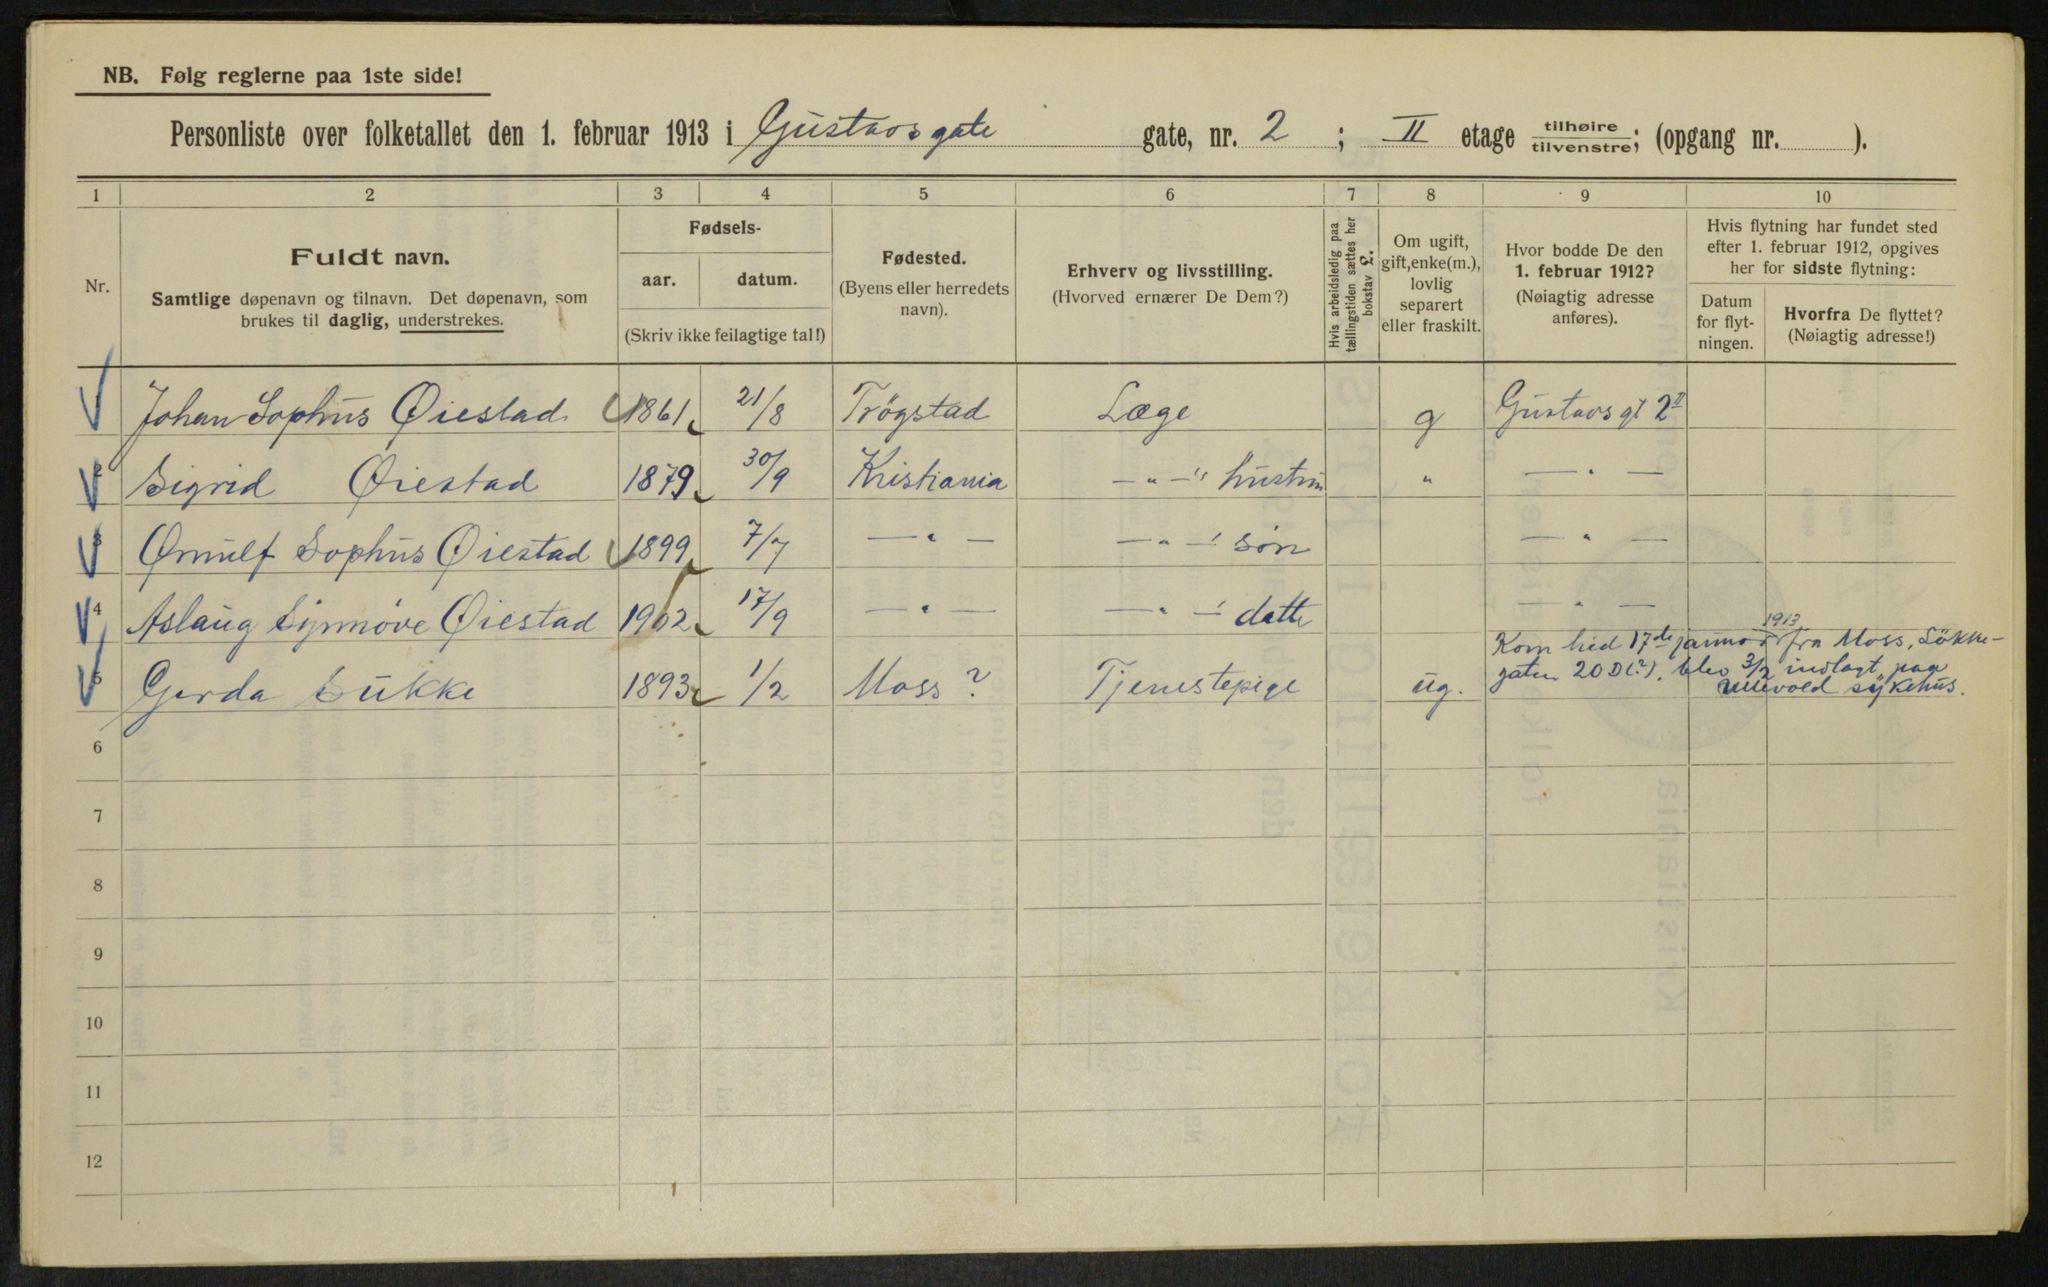 NB. Følg reglerne paa 1ste side!
Personliste over folketallet den 1. februar 1913 i Gustavsgate gate, nr. 2 ; II etage tilhøire tilvenstre; (opgang nr. ).
1 2 3 4 5 6 7 8 9 10
Nr.
Fuldt navn.
Samtlige døpenavn og tilnavn. Det døpenavn, som
brukes til daglig, understrekes.
Fødsels-
aar. datum.
(Skriv ikke feilagtige tal!)
Fødested.
(Byens eller herredets
navn).
Erhverv og livsstilling.
(Hvorved ernærer De Dem?)
Hvis arbeidsledig paa
tællingstiden sættes her
bokstav L.
Om ugift,
gift, enke(m.),
lovlig
separert
eller fraskilt.
Hvor bodde De den
1. februar 1912?
(Nøiagtig adresse
anføres).
Hvis flytning har fundet sted
efter 1. februar 1912, opgives
her for sidste flytning:
Datum
for flyt-
ningen.
Hvorfra De flyttet?
(Nøiagtig adresse!)
Johan Sophus Øiestad 1861 21/8 Trøgstad Læge g Gustavs gt 2 II
2 Sigrid Øiestad 1879 30/9 Kristiania — " — " hustru " — " —
3 Ørnulf Sophus Øiestad 1899 7/7 — " — — " — ' søn — " —
4 Aslaug Synnøve Øiestad 1902 17/9 — " — — " — ' datte — " —
5 Gerda Lukke 1893 1/2 Moss? Tjenestepige ug.
1913
Kom hid 17de januar fra Moss, Løkke-
gaten 20 D(?), blev 3/2 indlagt paa
Ullevold sykehus.
6
7
8
9
10
11
12